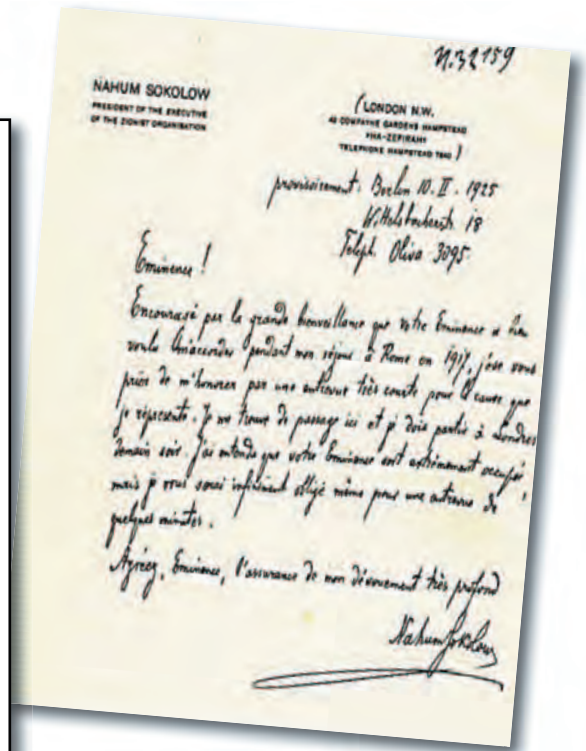 N.32159
NAHUM SOKOLOW
PRESIDENT OF THE EXECUTIVE
OF THE ZIONIST ORGANISATION
(LONDON N.W.
COMPAYNE GARDENS HAMPSTEAD
TELEPHONE HAMPSTEAD)
provisoirement: Berlin 10. II. 1925
18
Teleph. Oliva 3095
Eminence!
Encouragé par la grande bienveillance que votre Eminence a bien
voulu m'accorder pendant mon séjour à Rome en 1917, j'ose vous
prier de m'honorer par une entrevue très courte pour la cause que
je représente. Je me trouve de passage ici et je dois partir à Londres
demain soir. J'ai entendu que votre Eminence est extrêmement occupée,
mais je vous serai infiniment obligé même pour une entrevue de
quelques minutes.
Agréez, Eminence, l'assurance de mon dévouement très profond
Nahum Sokolow